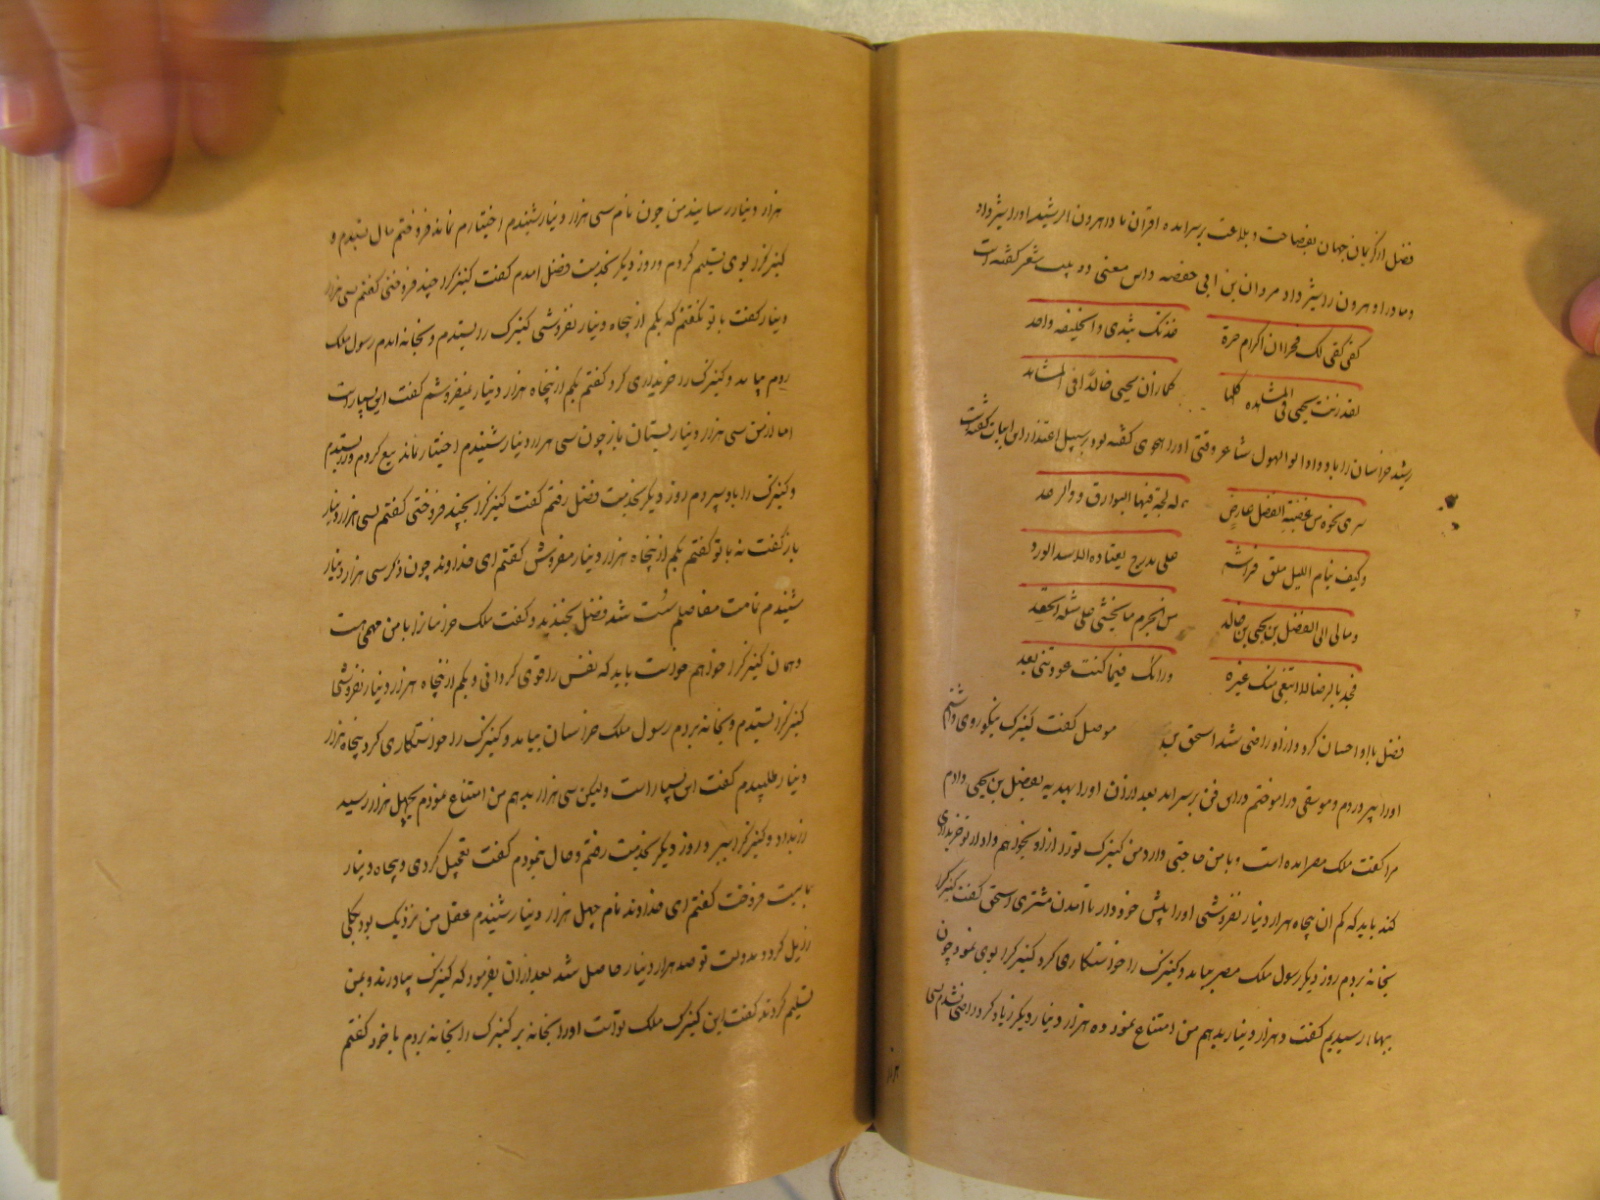 فضل از کریمان جهان بفصاحت و بلاغت برسرامده اقران مادر هرون الرشید اورا شیر داد
و مادر او هرون را شیر داد مروان بن ابی حفصه در این معنی دو بیت شعر کفته است
کفی لک فخرا ان اکرم حرة
غذتک بثدی والخلیفه واحد
لقد زنت یحیی فی المشاهده کلها
کما زان یحیی خالدا فی المشاهد
رشید خراسان را باو داد ابو الهول شاعر وقتی اورا هجوی کفته بود بر سبیل اعتذار این ابیات کفته است
سری نحوه من غضبة الفضل عارض
له لجة فیها البوارق والرعد
وکیف ینام اللیل ملق فراشه
علی مدرج یعتاده الاسد الورد
ومالی الی الفضل بن یحیی بن خالد
من الجرم ما یخشی علی مثله الحقد
فجد بالرضا لا ابتغی منک غیره
ورایک فیما کنت عودتنی بعد
فضل با او احسان کرد و از او راضی شد اسحق بن موصل کفت کنیزک نیکوروی داشتم
اورا بپروردم و موسیقی دراموختم در این فن برسرامد بعد ازان اورا بهدیه بفضل بن یحیی دادم
مرا کفت ملک مصر امده است و با من حاجتی دارد من کنیزک تورا ازو بخواهم و او از تو خریداری
کند باید که کم از پنجاه هزار دینار نفروشی اورا پیش خود دار تا آمدن مشتری اسحق کفت کنیزکرا
بخانه بردم روز دیکر رسول ملک مصر بیامد و کنیزک را خواستکاری کرد کنیزکرا بوی نمودم چون
ببهاء رسیدیم کفت ده هزار دینار بدهم من امتناع نمودم ده هزار دینار دیکر زیاد کرد راضی نشدم بسی
هزار
هزار دینار رسانید من چون نام سی هزار دینار شنیدم اختیارم نماند فروختم مال ستدم و
کنیزکرا بوی تسلیم کردم و روز دیکر بخدمت فضل امدم کفت کنیزکرا بچند فروختی کفتم بسی هزار
دینار کفت با تو نکفتم که بکم از پنجاه دینار نفروشی کنیزک را ستدم و بخانه امدم رسول ملک
روم بیامد و کنیزک را خریداری کرد کفتم بکم از پنجاه هزار دینار نمیفروشم کفت این بسیار است
اما از من سی هزار دینار بستان باز چون سی هزار دینار شنیدم اختیار نماند بیع کردم و زر ستیدم
و کنیزک را باو سپردم روز دیکر بخدمت فضل رفتم کفت کنیزکرا بچند فروختی کفتم بسی هزار دینار
باز کفت نه با تو کفتم بکم از پنجاه هزار دینار مفروش کفتم ای خداوند چون ذکر سی هزار دینار
شنیدم تمامت مفاصلم سست شد فضل بخندید و کفت ملک خراسانرا با من مهمی هست
و همان کنیزکرا خواهم خواست باید که نفس را قوی کردانی و بکم از پنجاه هزار دینار نفروشی
کنیزکرا ستدم و بخانه بردم رسول ملک خراسان بیامد و کنیزک را خواستکاری کرد پنجاه هزار
دینار طلبیدم کفت این بسیار است ولیکن سی هزار بدهم من امتناع نمودم بچهل هزار رسید
زر بداد و کنیزکرا ببرد و روز دیکر بخدمت رفتم و حال بنمودم کفت تعجیل کردی و پنجاه دینار
بایست فروخت کفتم ای خداوند نام چهل هزار دینار شنیدم عقل من نزدیک بود بکلی
زایل کردد بدولت تو صد هزار دینار حاصل شد بعد ازان بفرمود که کنیزک بیاورند و بمن
تسلیم کردند کفت این کنیزک ملک تو است اورا بخانه بر کنیزک را بخانه بردم با خود کفتم